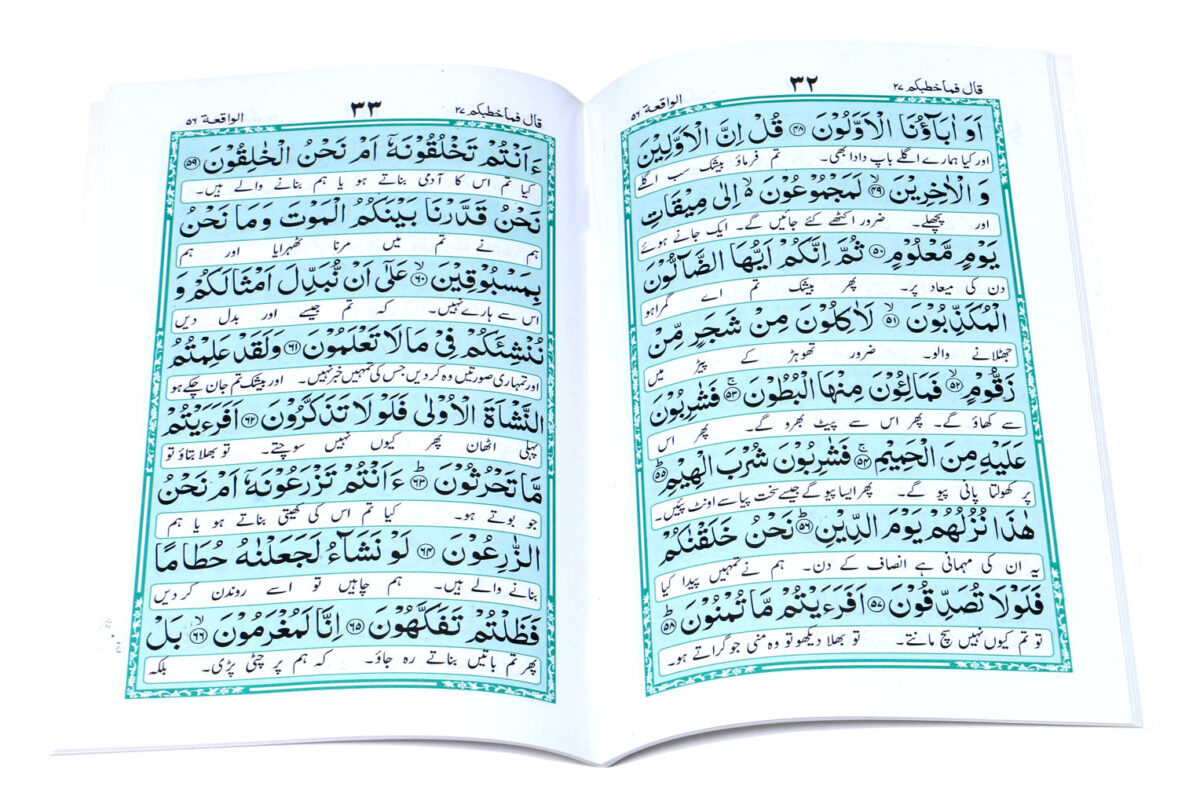 قال فماخطبكم ۲۷
۳۲
الواقعة ۵۶
اَوَ اٰبَآؤُنَا الْاَوَّلُوْنَ ﴿۴۸﴾ قُلْ اِنَّ الْاَوَّلِيْنَ
اور کیا ہمارے اگلے باپ دادا بھی۔ تم فرماؤ بیشک سب اگلے
وَ الْاٰخِرِيْنَ ﴿۴۹﴾ۙ لَمَجْمُوْعُوْنَ ۙ۬ اِلٰى مِيْقَاتِ
اور پچھلے۔ ضرور اکٹھے کئے جائیں گے۔ ایک جانے ہوئے
يَوْمٍ مَّعْلُوْمٍ ﴿۵۰﴾ ثُمَّ اِنَّكُمْ اَيُّهَا الضَّآلُّوْنَ
دن کی میعاد پر۔ پھر بیشک تم اے گمراہو
الْمُكَذِّبُوْنَ ﴿۵۱﴾ۙ لَاٰكِلُوْنَ مِنْ شَجَرٍ مِّنْ
جھٹلانے والو۔ ضرور تھوہڑ کے پیڑ میں
زَقُّوْمٍ ﴿۵۲﴾ۙ فَمَالِـُٔوْنَ مِنْهَا الْبُطُوْنَ ﴿۵۳﴾ۚ فَشٰرِبُوْنَ
سے کھاؤ گے۔ پھر اس سے پیٹ بھرو گے۔ پھر اس
عَلَيْهِ مِنَ الْحَمِيْمِ ﴿۵۴﴾ۚ فَشٰرِبُوْنَ شُرْبَ الْهِيْمِ ﴿۵۵﴾ؕ
پر کھولتا پانی پیو گے۔ پھر ایسا پیو گے جیسے سخت پیاسے اونٹ پئیں۔
هٰذَا نُزُلُهُمْ يَوْمَ الدِّيْنِ ﴿۵۶﴾ؕ نَحْنُ خَلَقْنٰكُمْ
یہ ان کی مہمانی ہے انصاف کے دن۔ ہم نے تمہیں پیدا کیا
فَلَوْلَا تُصَدِّقُوْنَ ﴿۵۷﴾ اَفَرَءَيْتُمْ مَّا تُمْنُوْنَ ﴿۵۸﴾ؕ
تو تم کیوں نہیں سچ مانتے۔ تو بھلا دیکھو تو وہ منی جو گراتے ہو۔
قال فماخطبكم ۲۷
۳۳
الواقعة ۵۶
ءَاَنْتُمْ تَخْلُقُوْنَهٗۤ اَمْ نَحْنُ الْخٰلِقُوْنَ ﴿۵۹﴾
کیا تم اس کا آدمی بناتے ہو یا ہم بنانے والے ہیں۔
نَحْنُ قَدَّرْنَا بَيْنَكُمُ الْمَوْتَ وَمَا نَحْنُ
ہم نے تم میں مرنا ٹھہرایا اور ہم
بِمَسْبُوْقِيْنَ ﴿۶۰﴾ۙ عَلٰۤى اَنْ نُّبَدِّلَ اَمْثَالَكُمْ وَ
اس سے ہارے نہیں۔ کہ تم جیسے اور بدل دیں
نُنْشِئَكُمْ فِيْ مَا لَا تَعْلَمُوْنَ ﴿۶۱﴾ وَلَقَدْ عَلِمْتُمُ
اور تمہاری صورتیں وہ کر دیں جس کی تمہیں خبر نہیں۔ اور بیشک تم جان چکے ہو
النَّشْاَةَ الْاُوْلٰى فَلَوْلَا تَذَكَّرُوْنَ ﴿۶۲﴾ اَفَرَءَيْتُمْ
پہلی اٹھان پھر کیوں نہیں سوچتے۔ تو بھلا بتاؤ تو
مَّا تَحْرُثُوْنَ ﴿۶۳﴾ؕ ءَاَنْتُمْ تَزْرَعُوْنَهٗۤ اَمْ نَحْنُ
جو بوتے ہو۔ کیا تم اس کی کھیتی بناتے ہو یا ہم
الزّٰرِعُوْنَ ﴿۶۴﴾ لَوْ نَشَآءُ لَجَعَلْنٰهُ حُطَامًا
بنانے والے ہیں۔ ہم چاہیں تو اسے روندن کر دیں
فَظَلْتُمْ تَفَكَّهُوْنَ ﴿۶۵﴾ اِنَّا لَمُغْرَمُوْنَ ﴿۶۶﴾ۙ بَلْ
پھر تم باتیں بناتے رہ جاؤ۔ کہ ہم پر چٹی پڑی۔ بلکہ